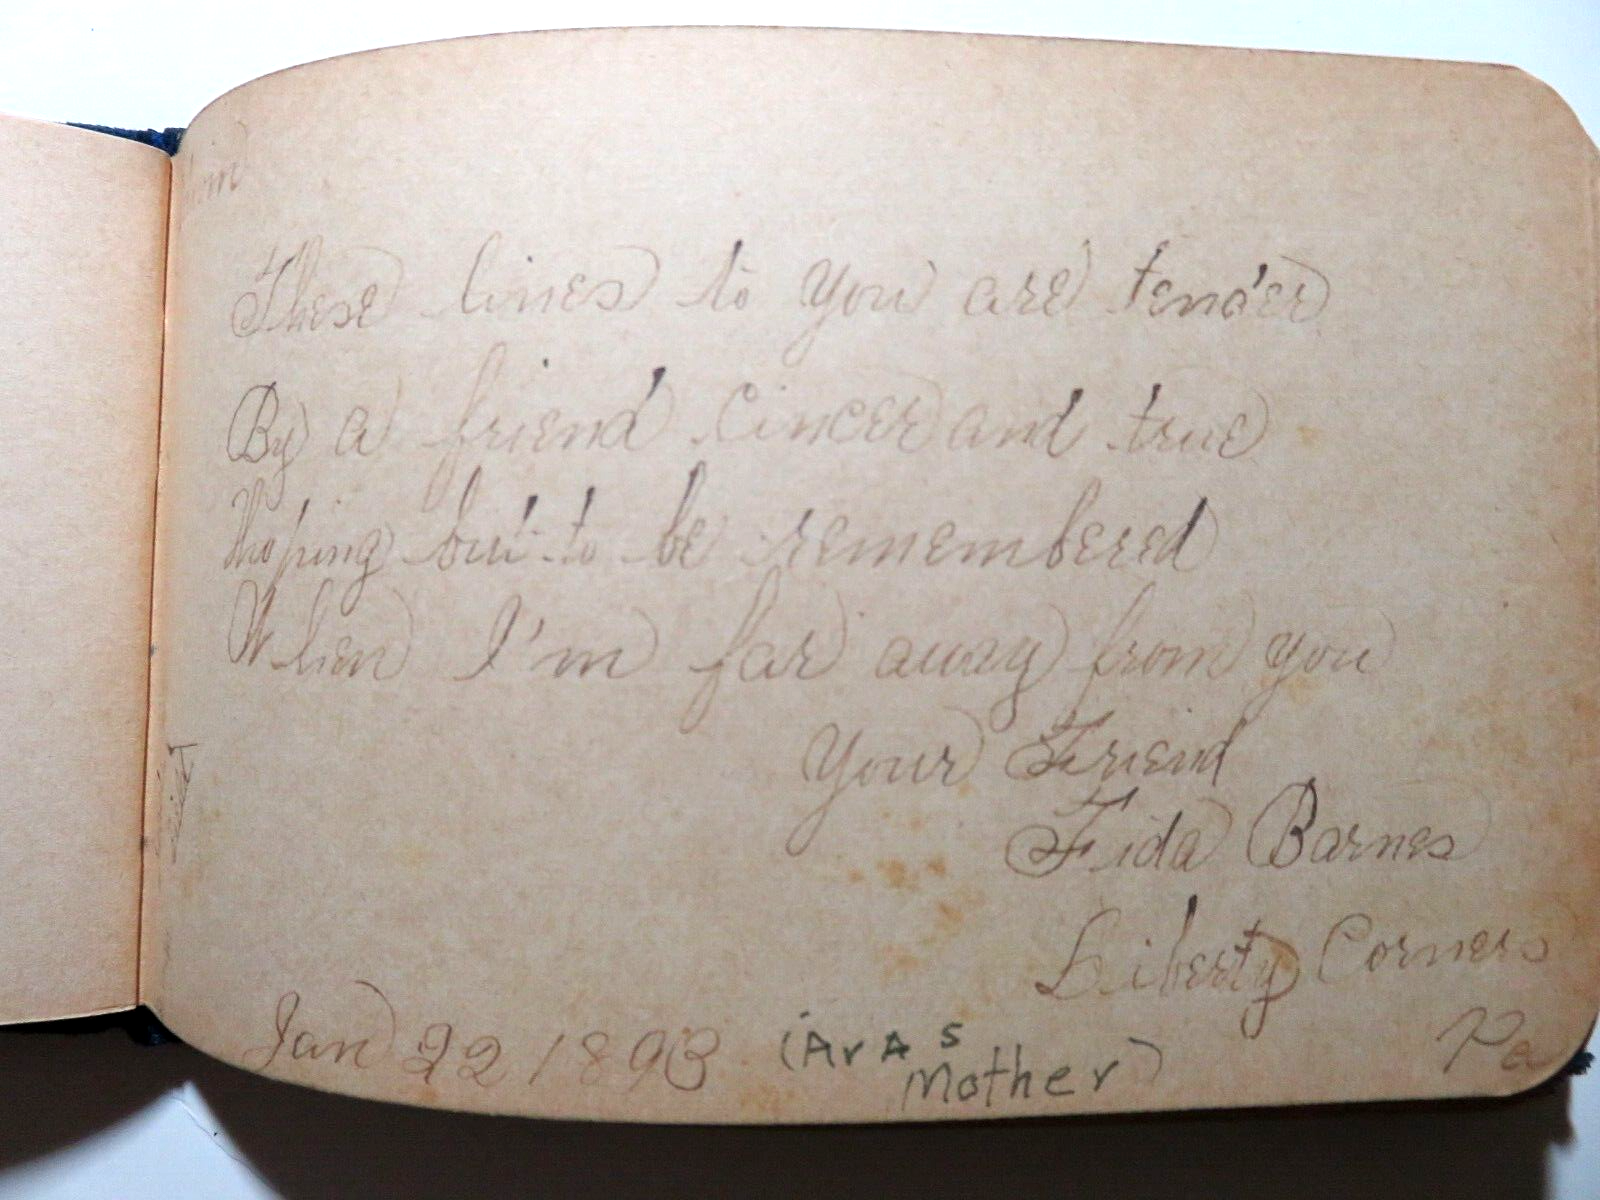 These lines to you are tender
By a friend cincer and true
Hoping but to be remembered
When I'm far away from you
Your Friend
Fida Barnes
Liberty Corners
Pa
Jan 22 1893
(Aras
Mother)